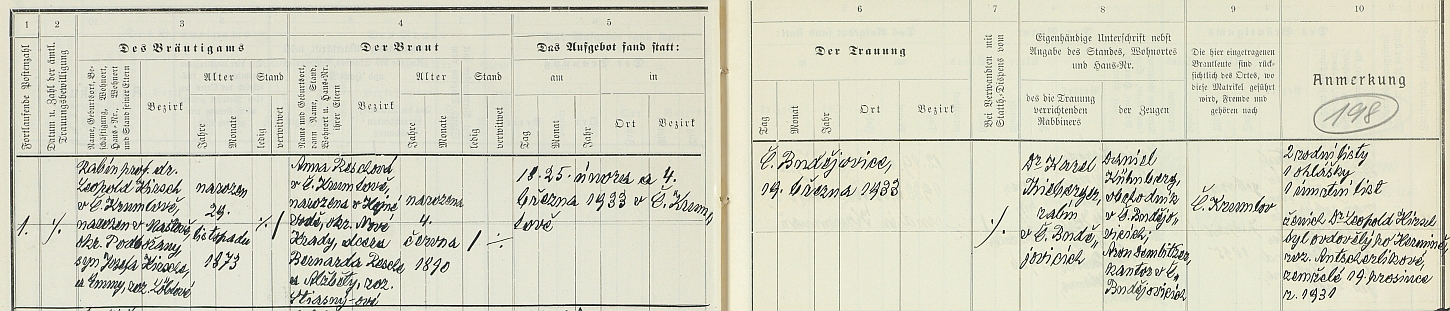 1
2
3
4
5
Fortlaufende Postenzahl
Datum u. Zahl der ämtl. Trauungsbewilligung
Des Bräutigams
Name, Geburtsort, Be-
schäftigung, Wohnort,
Haus-Nr., Wohnort
und Stand seiner Eltern
Bezirk
Alter
Jahre
Monate
Stand
ledig
verwitwet
Der Braut
Name und Geburtsort,
dann Name, Stand,
Wohnort u. Haus-Nr.
ihrer Eltern
Bezirk
Alter
Jahre
Monate
Stand
ledig
verwitwet
Das Aufgebot fand statt:
am
Tag
Monat
Jahr
in
Ort
Bezirk
1.
Rabín prof. dr.
Leopold Hirsch
v Č. Krumlově,
narozen v
okr. Podbořany,
syn Josefa Hirsche,
a Emmy, roz. Löblové
narozen
29.
listopadu
1873
Anna Reschová
v Č. Krumlově,
narozena v Hojné
Vodě, okr. Nové
Hrady, dcera
Bernarda Resche
a Alžběty, roz.
Stiasny-ové
narozena
4.
června
1890
18. 25. února a 4.
března 1933 v Č. Krum-
lově
6
7
8
9
10
Der Trauung
Tag
Monat
Jahr
Ort
Bezirk
Bei Verwandten mit
Statth.-Dispens vom
Eigenhändige Unterschrift nebst
Angabe des Standes, Wohnortes
und Haus-Nr.
des die Trauung
verrichtenden
Rabbiners
der Zeugen
Die hier eingetragenen
Brautleute sind rück-
sichtlich des Ortes, wo
diese Matrikel geführt
wird, Fremde und
gehören nach
Anmerkung
198
Č. Budějovice,
19. března 1933
Dr Karel
rabín
v Č. Budě-
jovicích
Daniel
obchodník
v Č. Budějo-
vicích;
Aron
kantor v Č.
Budějovicích
Č. Krumlov
2 rodní listy
1 ohlášky
1 úmrtní list
ženich Dr Leopold Hirsch
byl ovdovělý po Hermině,
roz. Antscherlíkové,
zemřelé 19. prosince
r. 1931